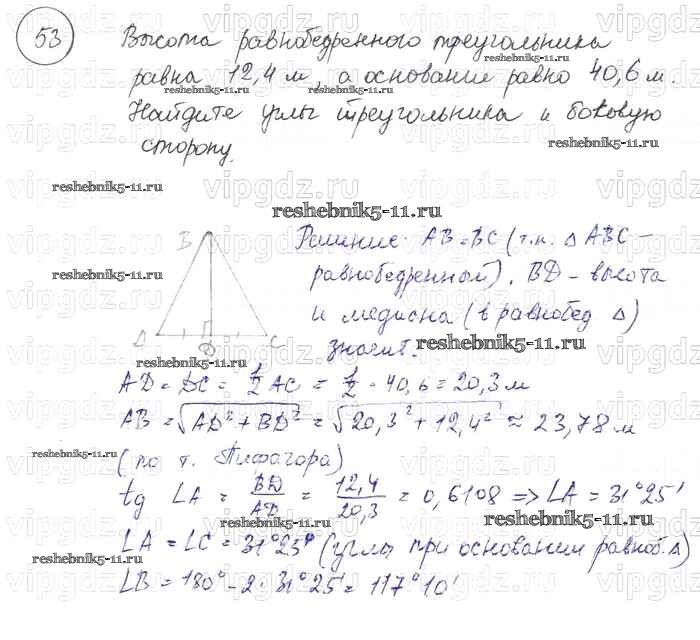 53
Высота равнобедренного треугольника
равна 12,4 м, а основание равно 40,6 м.
Найдите углы треугольника и боковую
сторону.
Решение: AB=BC (т.к. △ ABC –
равнобедренный). BD – высота
и медиана (в равнобед △)
значит.
B
A
D
C
AD = DC = 1/2 AC = 1/2 · 40,6 = 20,3 м
AB = √(AD² + BD²) = √(20,3² + 12,4²) ≈ 23,78 м
(по т. Пифагора)
tg ∠A = BD/AD = 12,4/20,3 = 0,6108 => ∠A = 31°25'
∠A = ∠C = 31°25' (углы при основании равноб. △)
∠B = 180° – 2 · 31°25' = 117°10'
vipgdz.ru
reshebnik5-11.ru